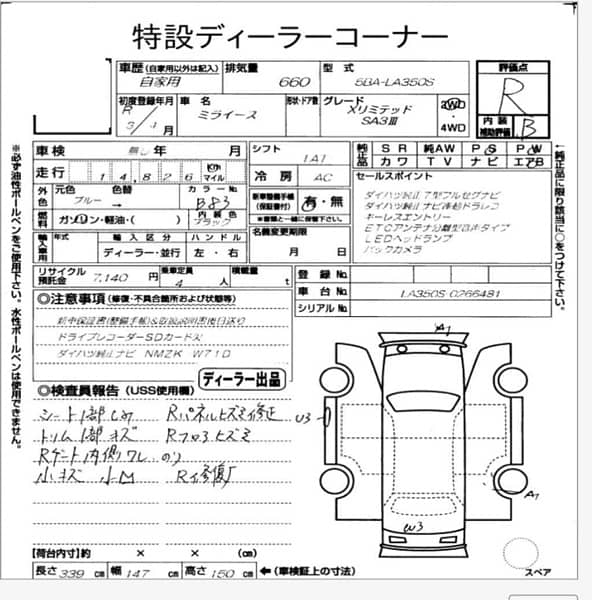 特設ディーラーコーナー
車歴 (自家用以外は記入) 自家用
排気量 660
型式 5BA-LA350S
評価点 R
内装補助評価 B
初度登録年月 R 3/
車名 ミライース
形状・ドア数
グレード Xリミテッド SA3Ⅲ
2WD ・ 4WD
車検 無し 年 月
シフト IAT
純正品 SR 純AW PS PW カワ TV ナビ エアB
走行 14,826 Km マイル
冷房 AC
セールスポイント
ダイハツ純正7型フルセグナビ
ダイハツ純正ナビ連動ドラレコ
キーレスエントリー
ETCアンテナ分離型音声タイプ
LEDヘッドランプ
バックカメラ
外色 元色 ブルー → 色替 カラーNo. B83
新車整備手帳 (保証書付) 有・無
※書類と一緒に保管下さい。
燃料 ガソリン・軽油・( ) 内装色 ブラック
名義変更期限 月 日
輸入車用 年式 輸入区分 ディーラー・並行 ハンドル 左・右
リサイクル預託金 7,140 円 乗車定員 4 人 積載量 t
登録No.
車台No. LA350S-0266481
シリアルNo.
◎注意事項 (修復・不具合箇所および状態等)
新車保証書(整備手帳)&取扱説明書後日送り
ドライブレコーダーSDカード欠
ダイハツ純正ナビ NMZK W71D
ディーラー出品
◎検査員報告 (USS使用欄)
シート1部しみ Rパネルヒズミ修正
トリム1部キズ Rフロアヒズミ
Rゲート内側ワレ のり
小キズ 小凹 R修復有
A1
U3
A1
W3
スペア
【荷台内寸】約 × × (cm)
長さ 339 cm 幅 147 cm 高さ 150 cm ←(車検証上の寸法)
※必ず油性ボールペンをご使用下さい。水性ボールペンは使用できません。
←純正品に限り該当に○をつけて下さい。